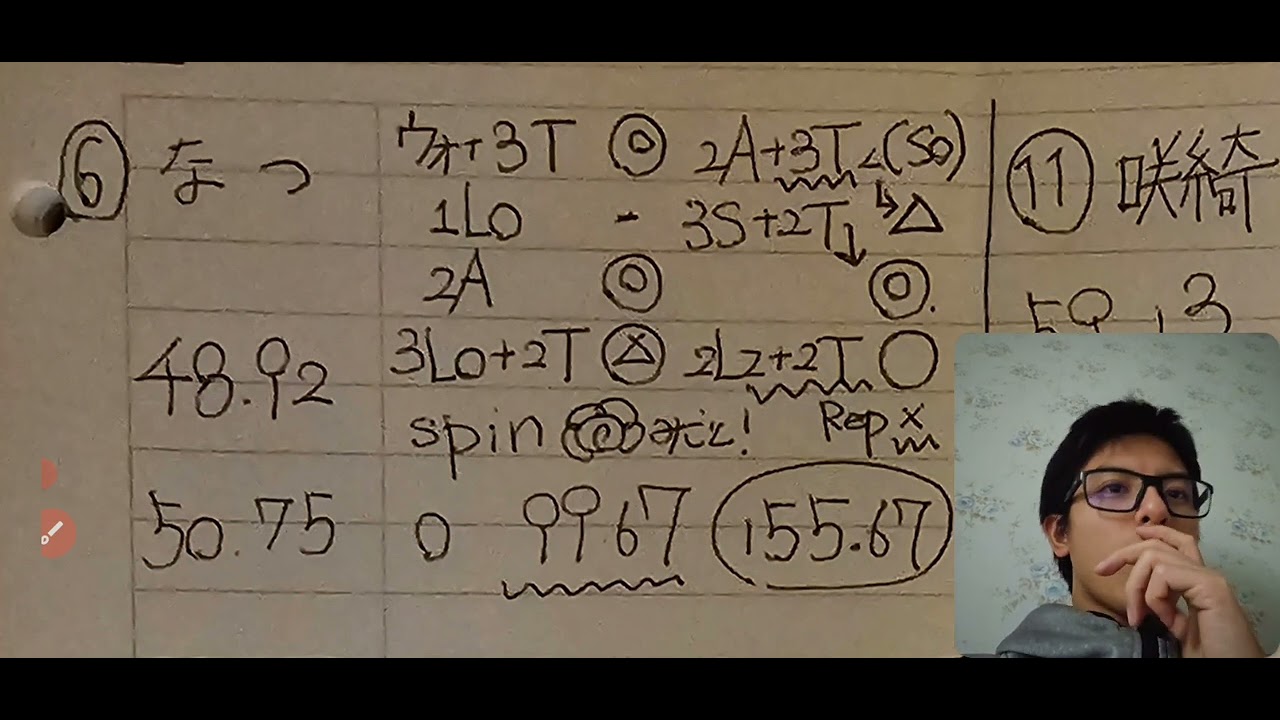 ⑥ なつ ウォ+3T ◎ 2A+3T<(So) ⑪ 咲綺
1Lo - 3S+2T↓ ↳△
2A ◎ ◎.
48.92 3Lo+2T 2Lz+2T ○
spin ! Rep x
50.75 0 99.67 155.67